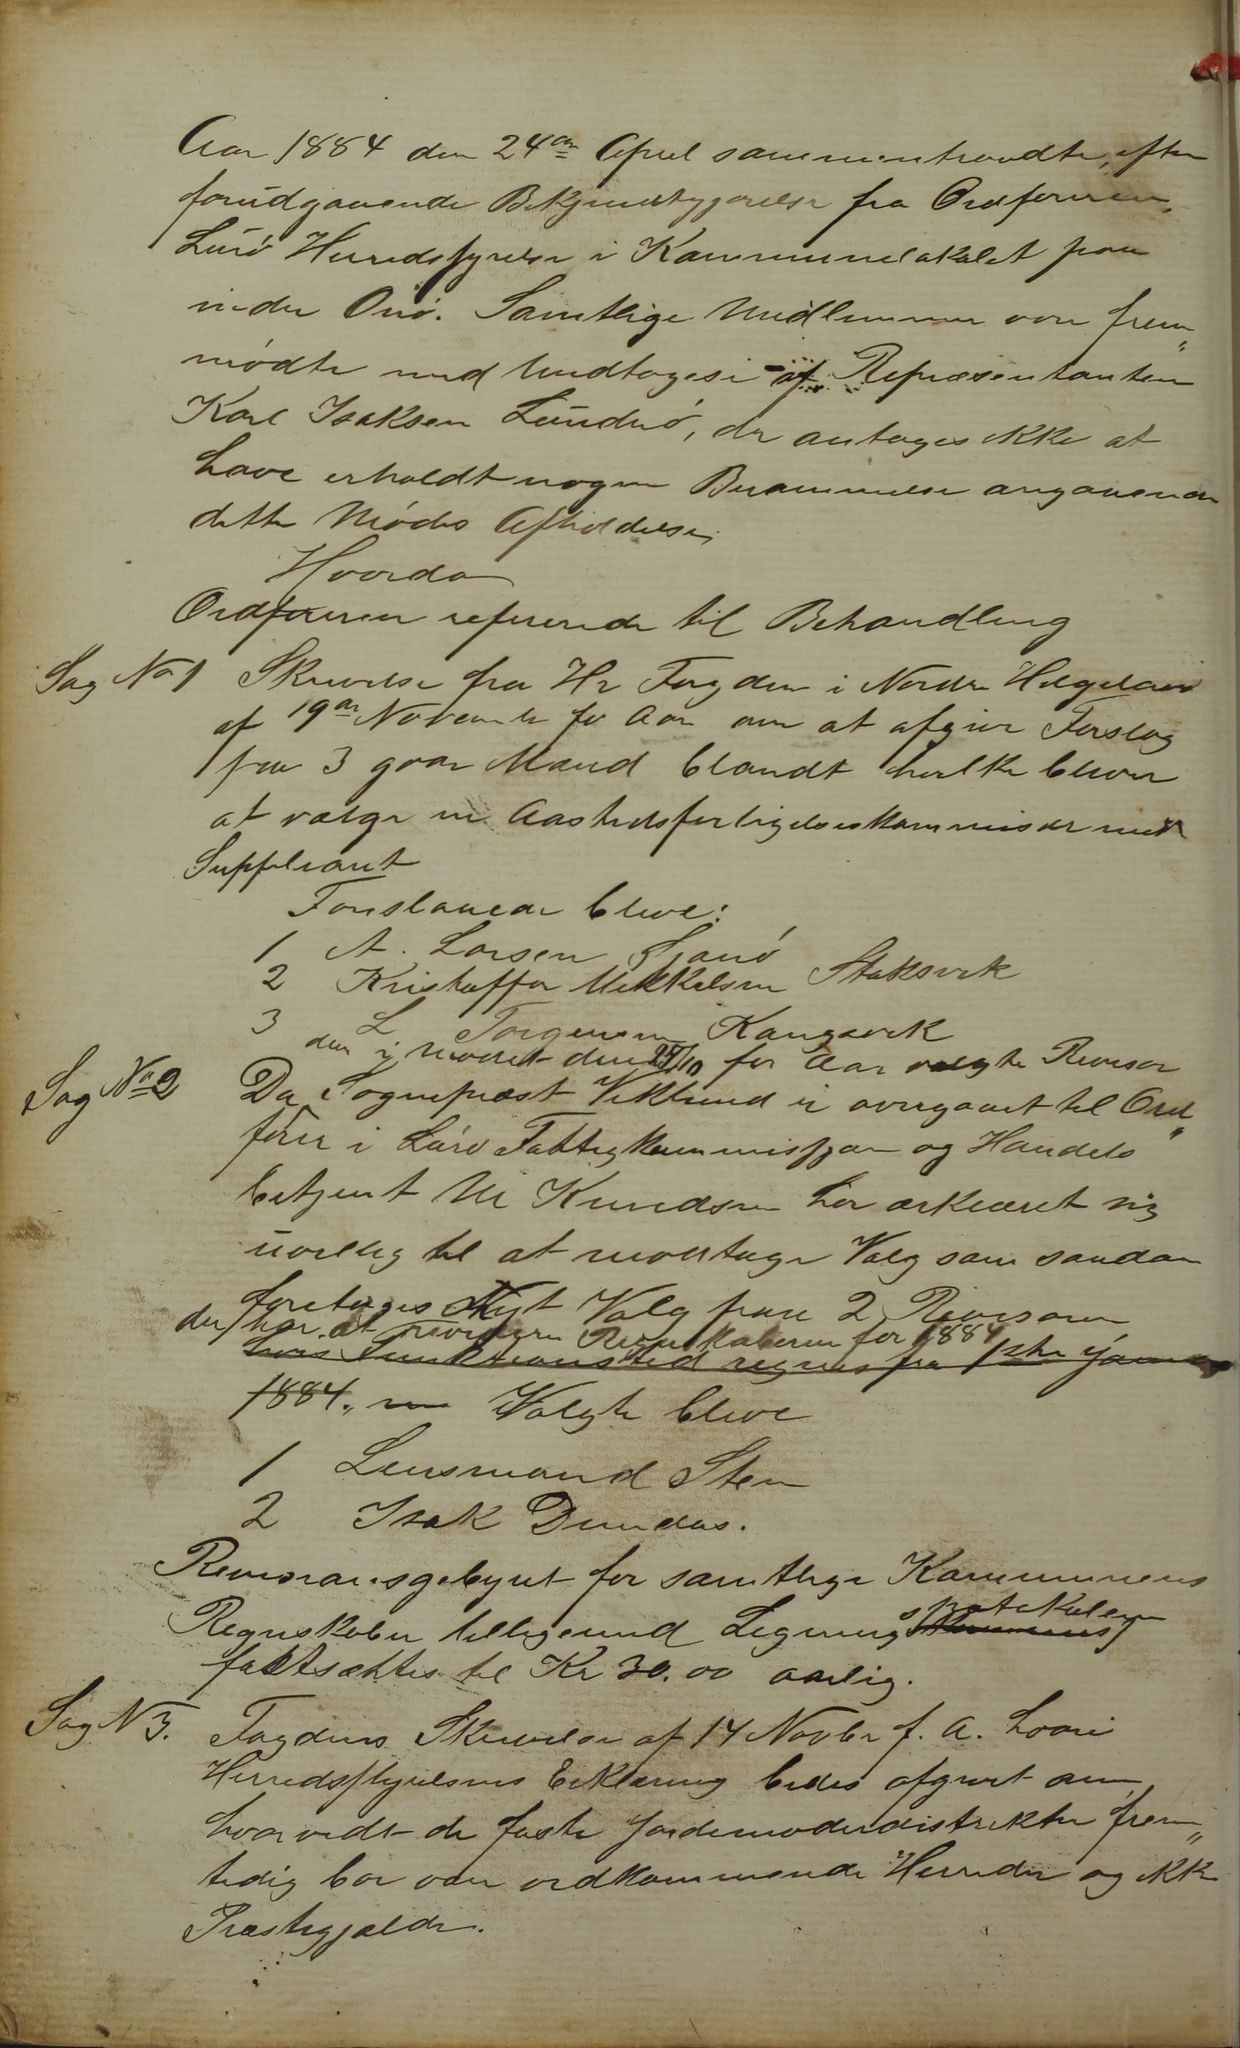 Aar 1884 den 24de April sammentraadte, efter
forudgaaende Bekjendtgjørelse fra Ordføreren,
Lurø Herredsstyrelse i Kommunelokalet paa
indre Onø. Samtlige Medlemmer var frem„
mødte med Undtagelse af Repræsentanten
Karl Isaksen Lundø, der antages ikke at
have erholdt nogen Berammelse angaaende
dette Mødes Afholdelse.
Hvorda
Ordføreren refererede til Behandling
Sag No 1 Skrivelse fra Hr Fogden i Nordre Helgeland
af 19de November f Aar om at afgive Forslag
paa 3 gode Mænd blandt hvilke bliver
at vælge en Aastedsforligelseskommissær med
Suppleant
Foreslaaede bleve:
1 A. Larsen Sjonø
2 Kristoffer Mikkelsen Stuksvik
3 L Torgersen Kangsvik
den i Mødet den 24/10 for Aar valgte Revisor
Sag No 2 Da Sogneprest Viklund er overgaaet til Ord„
fører i Lurø Fattigkommission og Handels
betjent M Knudsen har erklæret sig
uvillig til at modtage Valg som saadan
foretages Nyt Valg paa 2 Revisorer
der har at revidere Regnskaberne for 1884
hvis Funktionstid regnes fra 1ste Januar
1884. Valgte bleve
1 Lensmand Sten
2 Isak Dundas.
Revisionsgebyret for samtlige Kommunens
Regnskaber tilligemed Lignings protokollen
fastsættes til Kr 30.00 aarlig.
Sag N 3. Fogdens Skrivelse af 14 Novbr f. A. hvori
Herredsstyrelsens Erklæring bedes afgivet om
hvorvidt de faste Jordemoderdistrikter frem„
tidig bør være vedkommende Herreder og ikke
Præstegjælde.